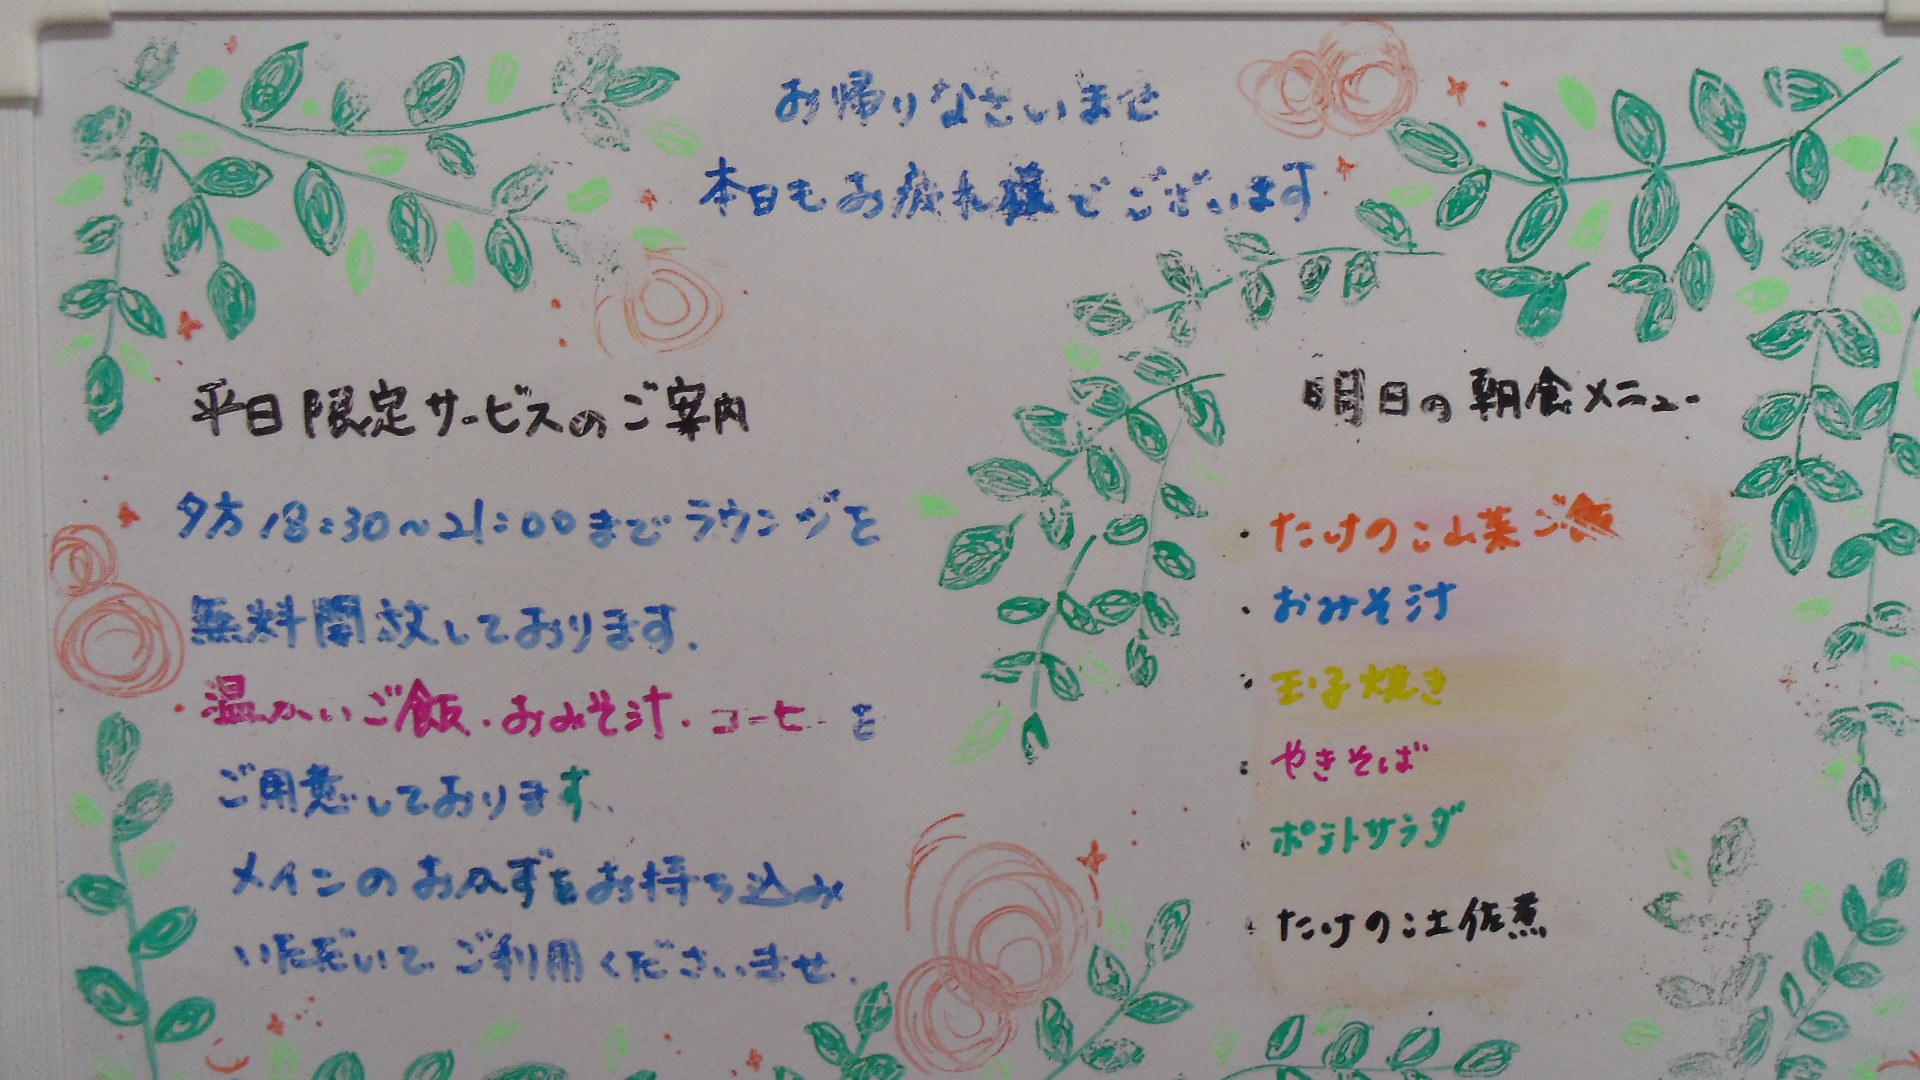 お帰りなさいませ
本日もお疲れ様でございます
平日限定サービスのご案内
夕方18:30～21:00までラウンジを
無料開放しております.
温かいご飯・おみそ汁・コーヒーを
ご用意しております.
メインのおかずをお持ち込み
いただいてご利用くださいませ.
明日の朝食メニュー
・たけのこ山菜ご飯
・おみそ汁
・玉子焼き
・やきそば
・ポテトサラダ
・たけのこ土佐煮